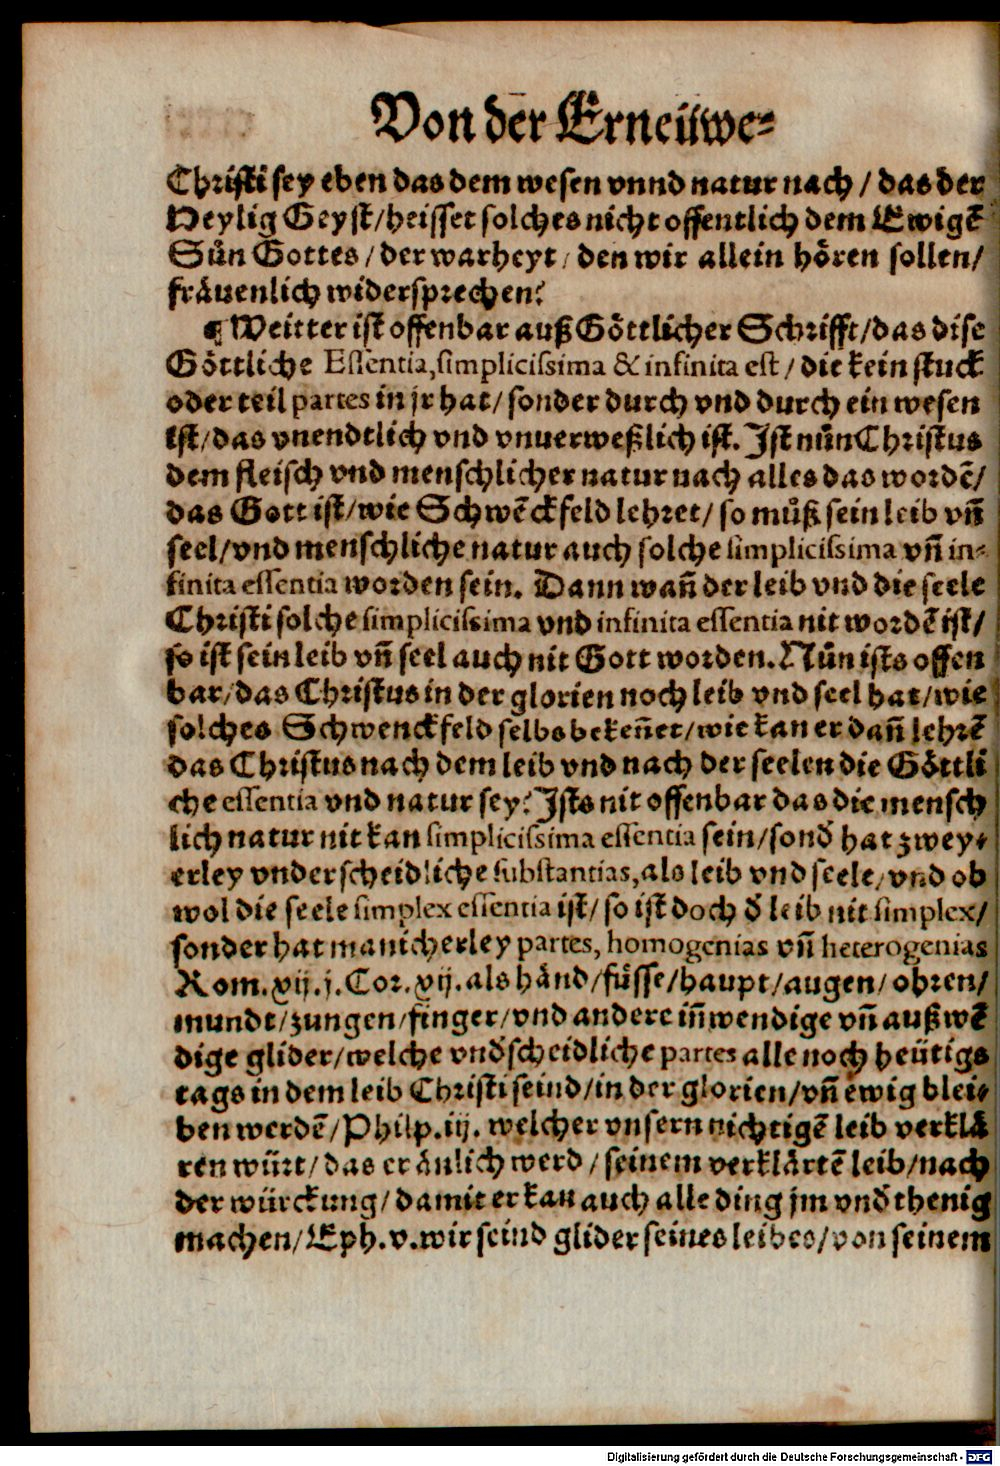 Von der Erneüwe⸗
Christi sey eben das dem wesen vnnd natur nach / das der
Heylig Geyst/heisset solches nicht offentlich dem Ewigē
Sůn Gottes / der warheyt / den wir allein hören sollen/
fräuenlich widersprechen?
¶ Weitter ist offenbar auß Göttlicher Schrifft/das dise
Göttliche Essentia, simplicissima & infinita est / die kein stuck
oder teil partes in jr hat/ sonder durch vnd durch ein wesen
ist/das vnendtlich vnd vnuerweßlich ist. Ist nůn Christus
dem fleisch vnd menschlicher natur nach alles das wordē/
das Gott ist/wie Schwēckfeld lehret/ so můß sein leib vñ
seel/vnd menschliche natur auch solche simplicissima vñ in⸗
finita essentia worden sein. Dann wañ der leib vnd die seele
Christi solche simplicissima vnd infinita essentia nit wordē ist/
so ist sein leib vñ seel auch nit Gott worden. Nůn ists offen
bar/das Christus in der glorien noch leib vnd seel hat/wie
solches Schwenckfeld selbs bekeñet/wie kan er dañ lehrē
das Christus nach dem leib vnd nach der seelen die Göttli
che essentia vnd natur sey? Ists nit offenbar das die mensch
lich natur nit kan simplicissima essentia sein/sond̄ hat zwey⸗
erley vnderscheidliche substantias, als leib vnd seele/ vnd ob
wol die seele simplex essentia ist/ so ist doch d̄ leib nit simplex/
sonder hat manicherley partes, homogenias vñ heterogenias
Rom. xij. j. Cor. xij. als händ/füsse/haupt/augen/ ohren/
mundt/zungen/finger/vnd andere iñwendige vñ außwē
dige glider/welche vnd̄scheidliche partes alle noch heütigs
tags in dem leib Christi seind/in der glorien/vñ ewig blei⸗
ben werdē/Philp. iij. welcher vnsern nichtigē leib verklä
ren würt/das er änlich werd / seinem verklärtē leib/nach
der würckung/damit er kan auch alle ding jm vnd̄thenig
machen/Eph. v. wir seind glider seines leibes/von seinem
Digitalisierung gefördert durch die Deutsche Forschungsgemeinschaft - DFG